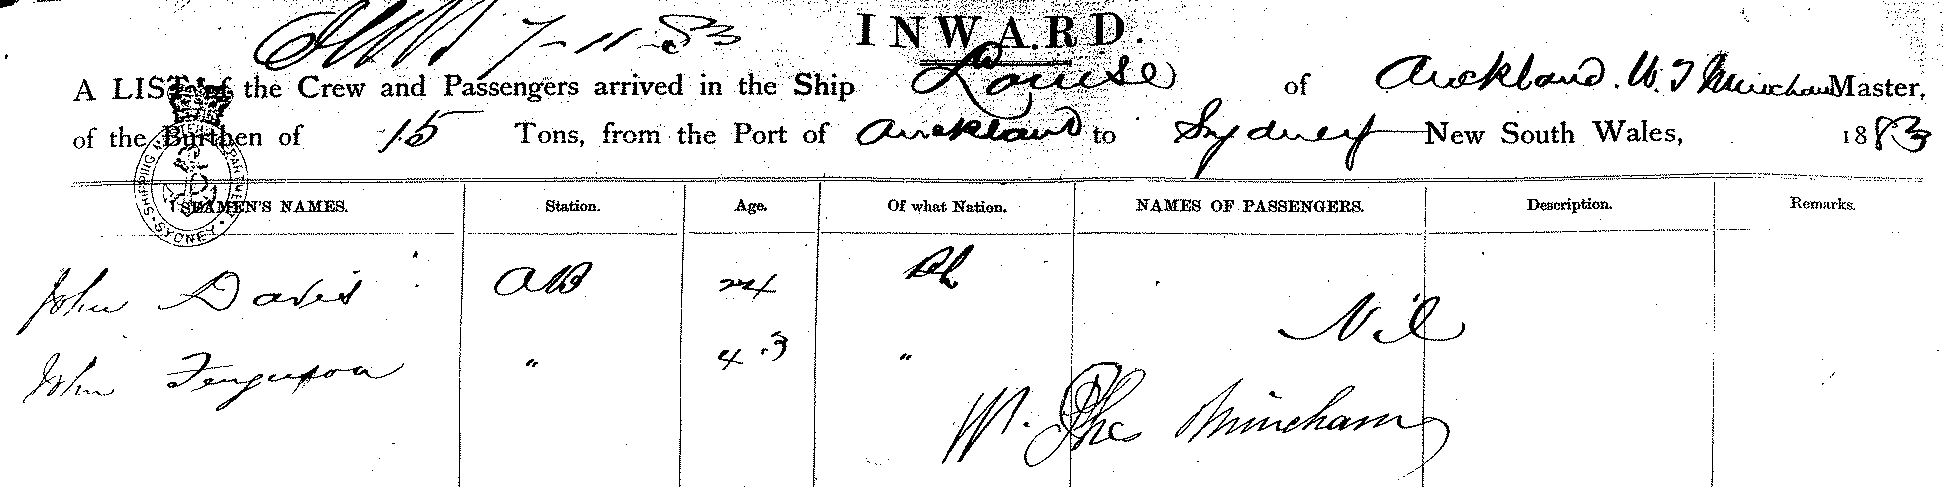 7-11-83
INWARD.
A LIST of the Crew and Passengers arrived in the Ship Louise of Auckland. W. T Mincham Master,
of the Burthen of 15 Tons, from the Port of Auckland to Sydney New South Wales, 1883
SHIPPING SYDNEY
SEAMEN'S NAMES. Station. Age. Of what Nation. NAMES OF PASSENGERS. Description. Remarks.
John Davis AB 24
Nil
John Ferguson " 43 "
W. Thos Mincham